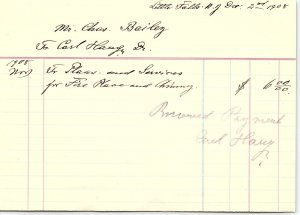 Little Falls N.J Dec. 2nd 1908
Mr. Chas. Bailey
To Carl Haug, Dr.
1908
Nov To Plans and Services
for Fire Place and Chimney $ 6 00
Received Payment
Carl Haug